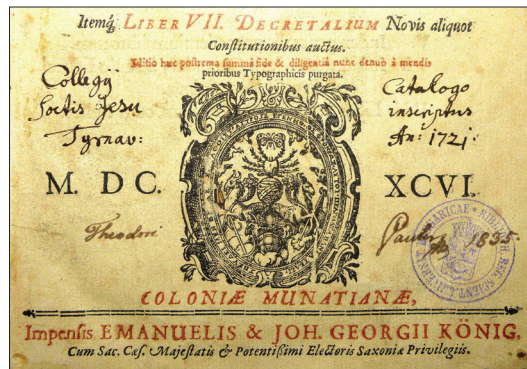 Itemq́ LIBER VII. DECRETALIUM Novis aliquot
Constitutionibus auctus.
Editio hæc postrema summâ fide & diligentiâ nunc denuò à mendis
prioribus Typographicis purgata.
Collegÿ
Soctis Jesu
Tyrnav:
Catalogo
inscriptus
An: 1721.
M. DC. XCVI.
Theodori
Pauler 1835
COLONIÆ MUNATIANÆ,
Impensis EMANUELIS & JOH. GEORGII KÖNIG,
Cum Sac. Cæs. Majestatis & Potentissimi Electoris Saxoniæ Privilegiis.